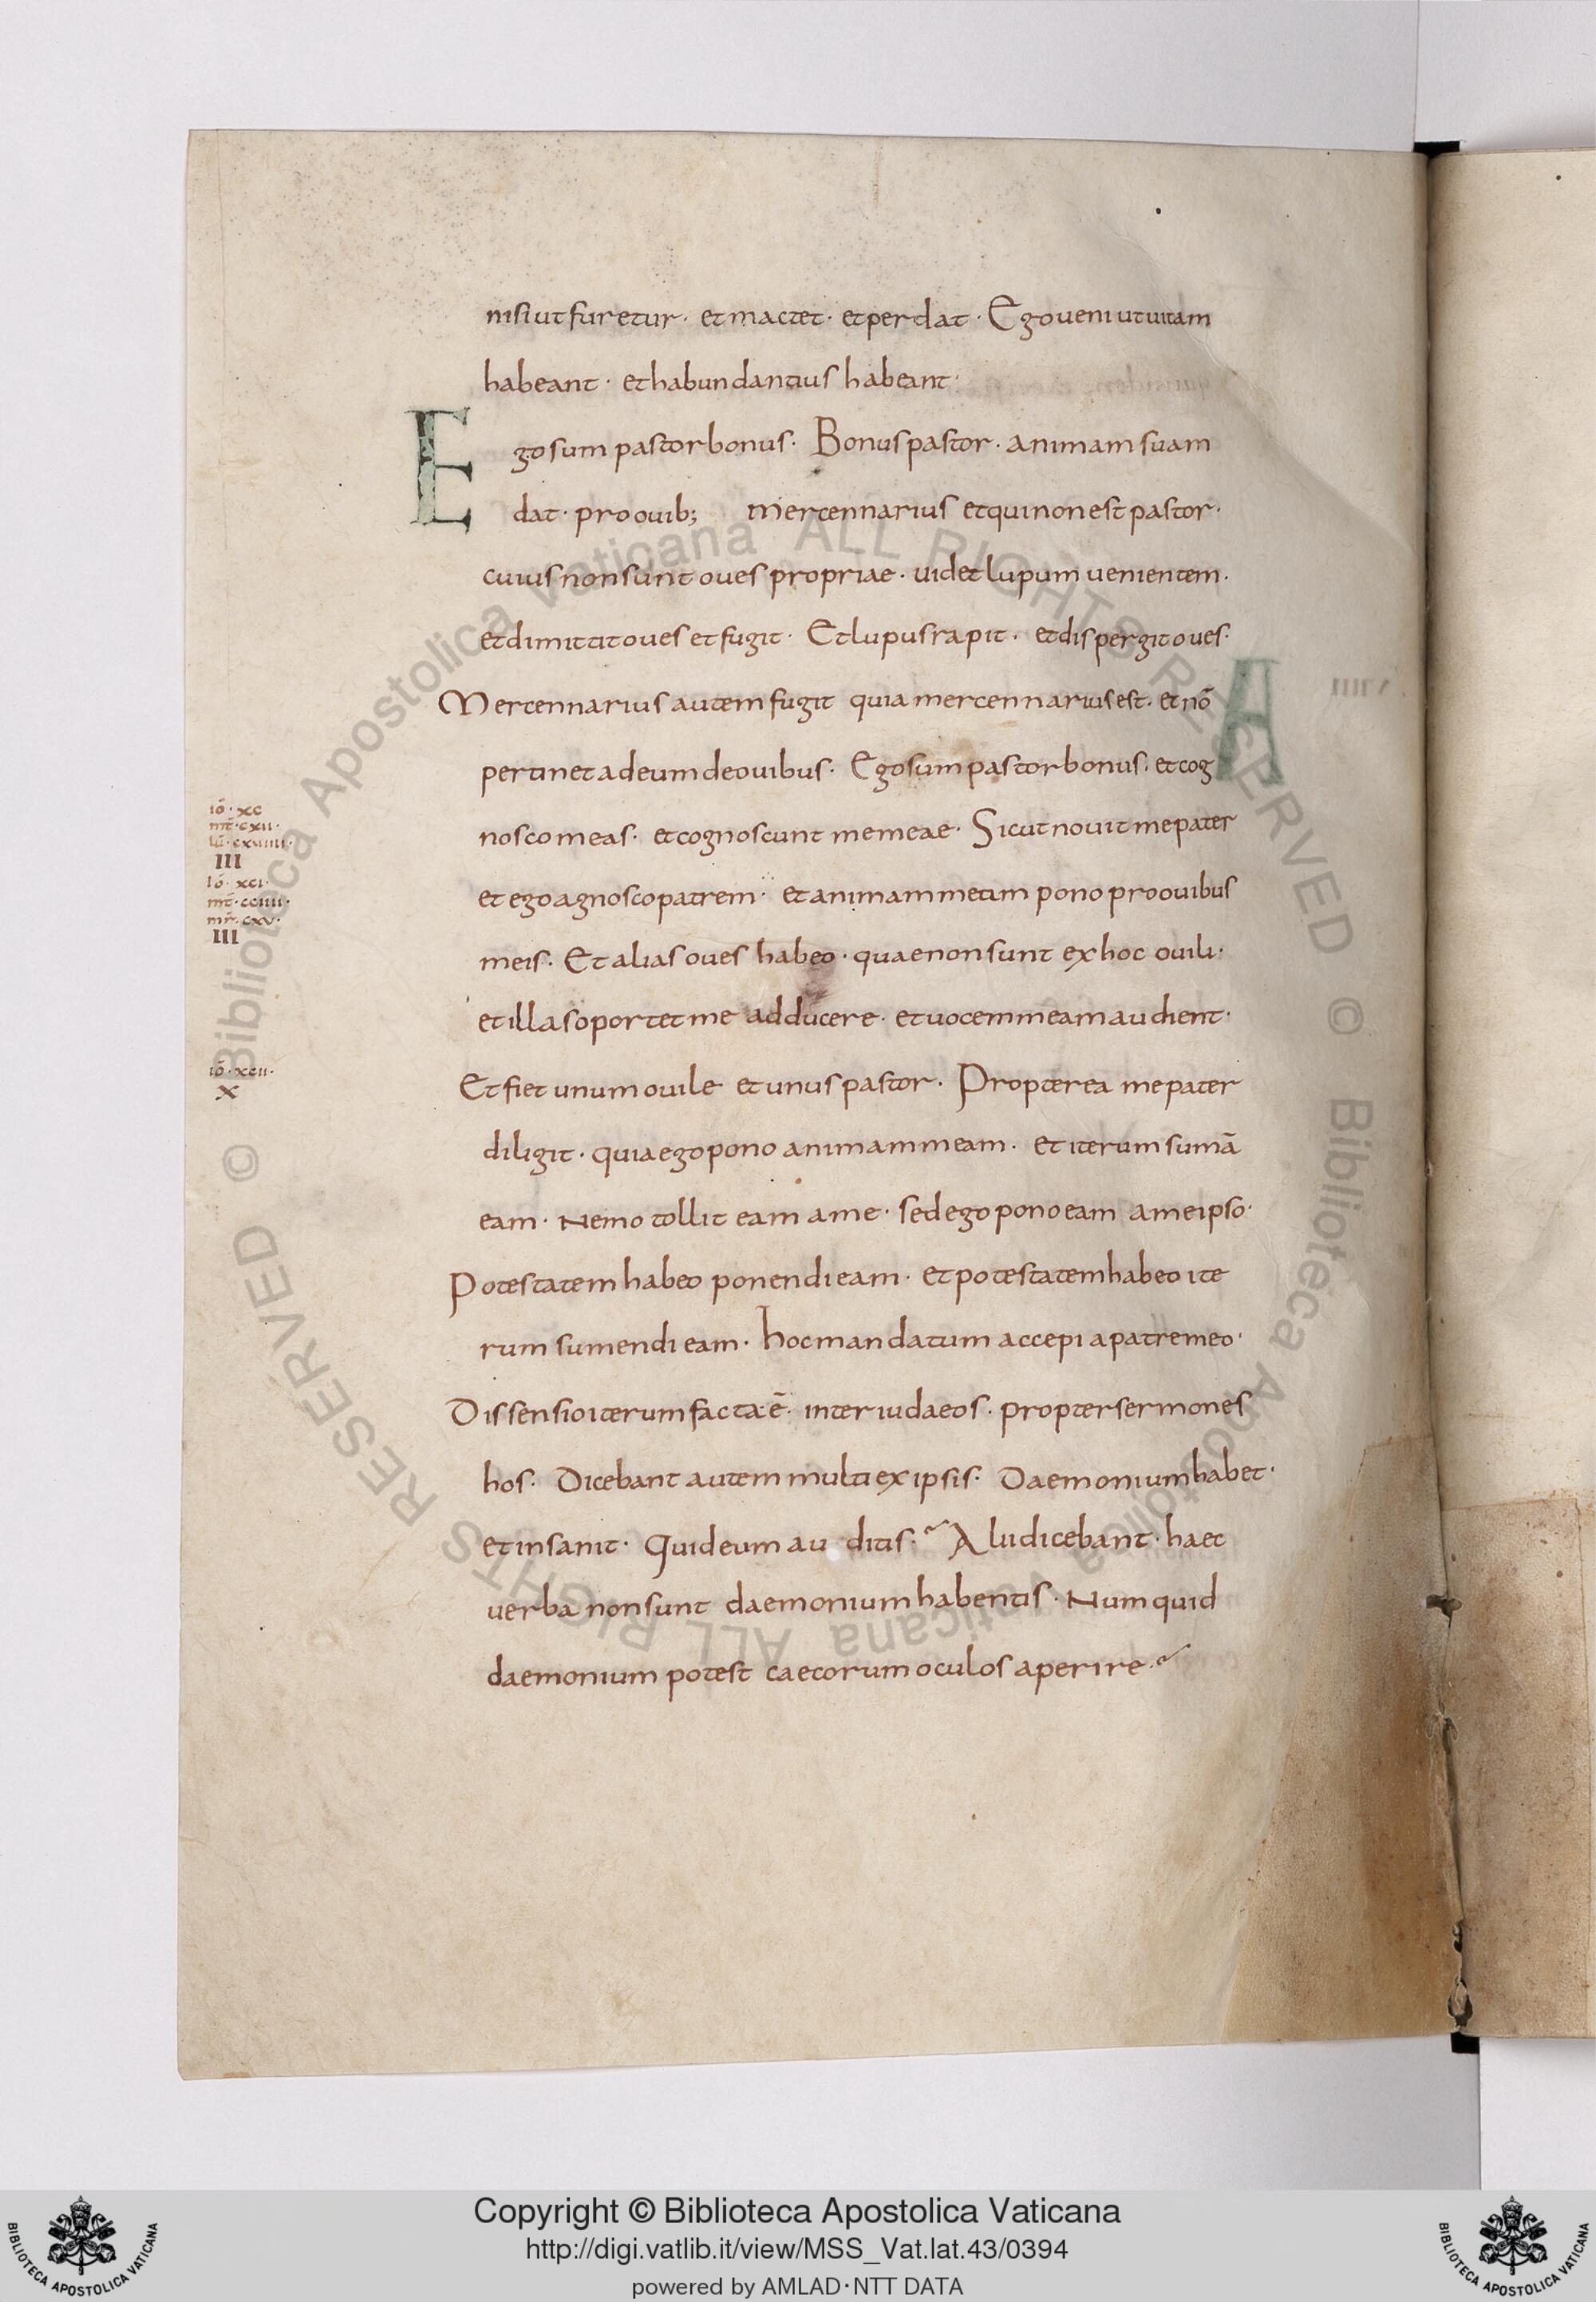 nisi ut furetur · et mactet · et perdat · Ego veni ut vitam
habeant · et habundantius habeant ·
Ego sum pastor bonus · Bonus pastor · animam suam
dat · pro ouib; mercennarius et qui non est pastor ·
cuius non sunt oues propriae · uidet lupum uenientem ·
et dimittit oues et fugit · Et lupus rapit · et dispergit oues ·
Mercennarius autem fugit quia mercennarius est · et nō
pertinet ad eum de ouibus · Ego sum pastor bonus · et cog
iō · xc
mt̄ · cxii ·
III
nosco meas · et cognoscunt me meae · Sicut nouit me pater
iō · xci ·
mt̄ · cciiii ·
mr̄ · cxv ·
III
et ego agnosco patrem · et animam meam pono pro ouibus
meis · Et alias oues habeo · quae non sunt ex hoc ouili ·
et illas oportet me adducere · et uocem meam audient ·
iō · xcii ·
X
Et fiet unum ouile et unus pastor · Propterea me pater
diligit · quia ego pono animam meam · et iterum sumā
eam · Nemo tollit eam a me · sed ego pono eam a me ipso ·
Potestatem habeo ponendi eam · et potestatem habeo ite
rum sumendi eam · hoc mandatum accepi a patre meo ·
Dissensio iterum facta ē · inter iudaeos · propter sermones
hos · Dicebant autem multi ex ipsis · Daemonium habet ·
et insanit · Quid eum auditis · Alii dicebant · haec
uerba non sunt daemonium habentis · Numquid
daemonium potest caecorum oculos aperire ·
© Biblioteca Apostolica Vaticana ALL RIGHTS RESERVED © Biblioteca Apostolica Vaticana ALL RIGHTS RESERVED
Copyright © Biblioteca Apostolica Vaticana
http://digi.vatlib.it/view/MSS_Vat.lat.43/0394
powered by AMLAD·NTT DATA
BIBLIOTECA APOSTOLICA VATICANA
BIBLIOTECA APOSTOLICA VATICANA